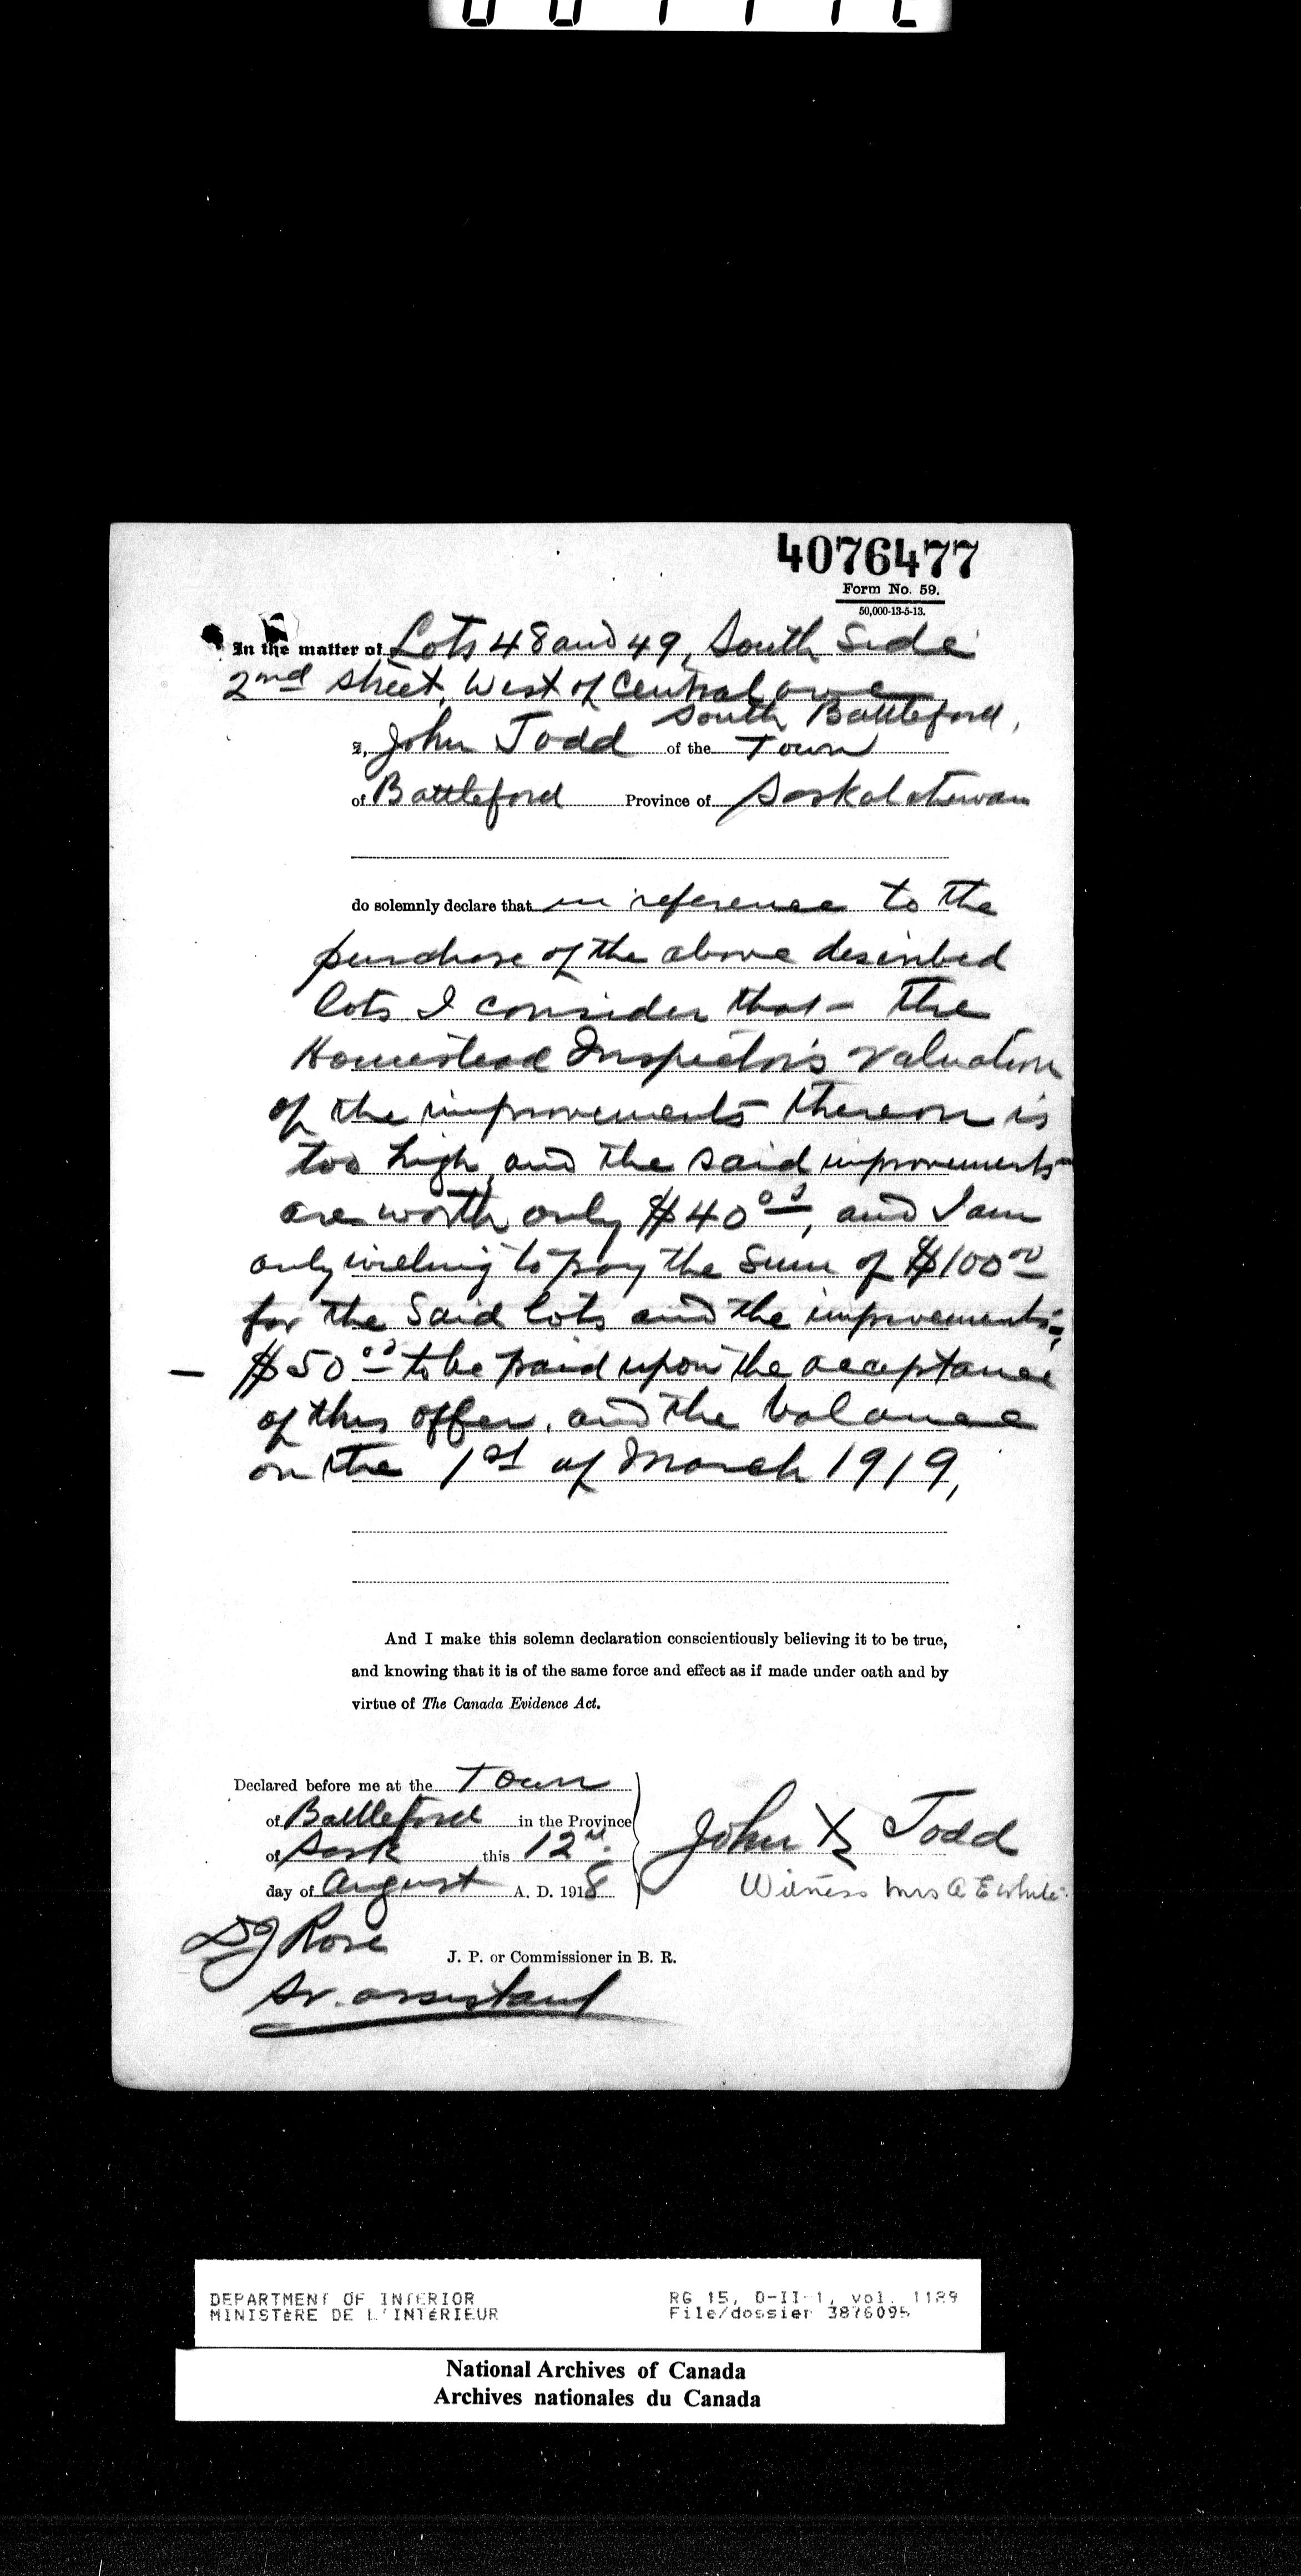 4076477
Form No. 59.
50,000-13-5-13.
In the matter of Lots 48 and 49, South Side
2nd street, West of Central ave
South Battleford,
I, John Todd of the Town
of Battleford Province of Saskatchewan
do solemnly declare that in reference to the
purchase of the above described
lots I consider that - the
Homestead Inspector's valuation
of the improvements thereon is
too high, and the said improvements
are worth only $40.00, and I am
only willing to pay the sum of $100.00
for the said lots and the improvements;
- $50.00 to be paid upon the acceptance
of this offer, and the balance
on the 1st of March 1919,
And I make this solemn declaration conscientiously believing it to be true,
and knowing that it is of the same force and effect as if made under oath and by
virtue of The Canada Evidence Act.
Declared before me at the Town
of Battleford in the Province
of Sask this 12th
day of August A. D. 1918
John X Todd
Witness Mrs A E White
D J Rose
J. P. or Commissioner in B. R.
Sr. assistant
DEPARTMENT OF INTERIOR RG 15, D-II-1, vol. 1189
MINISTÈRE DE L'INTÉRIEUR File/dossier 3876095
National Archives of Canada
Archives nationales du Canada